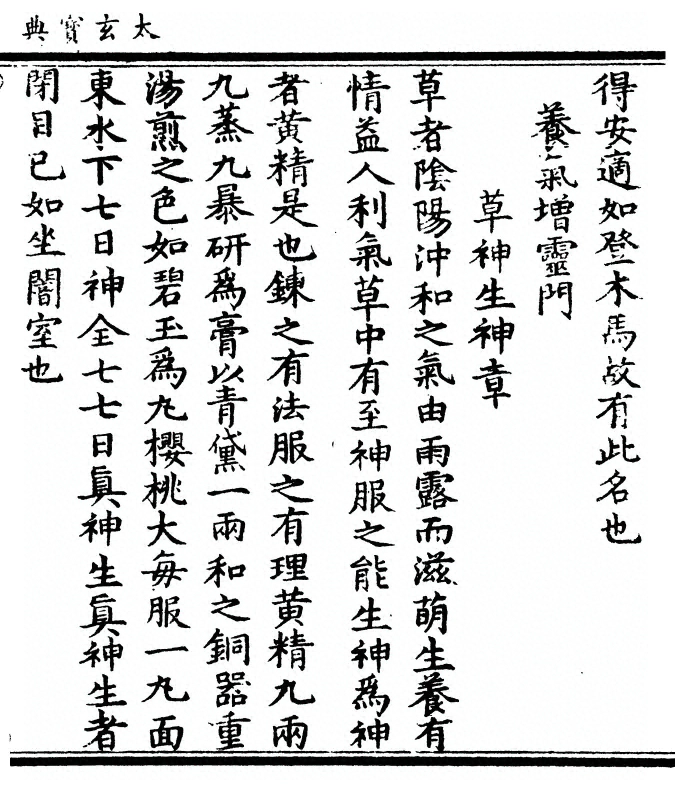 太玄寶典
得安適如登木馬故有此名也
養氣增靈門
草神生神章
草者陰陽沖和之氣由雨露而滋萌生養有
情益人利氣草中有至神服之能生神爲神
者黃精是也鍊之有法服之有理黃精九兩
九蒸九暴研爲膏以青黛一兩和之銅器重
湯煎之色如碧玉爲丸櫻桃大每服一丸面
東水下七日神全七七日眞神生眞神生者
閉目已如坐闇室也